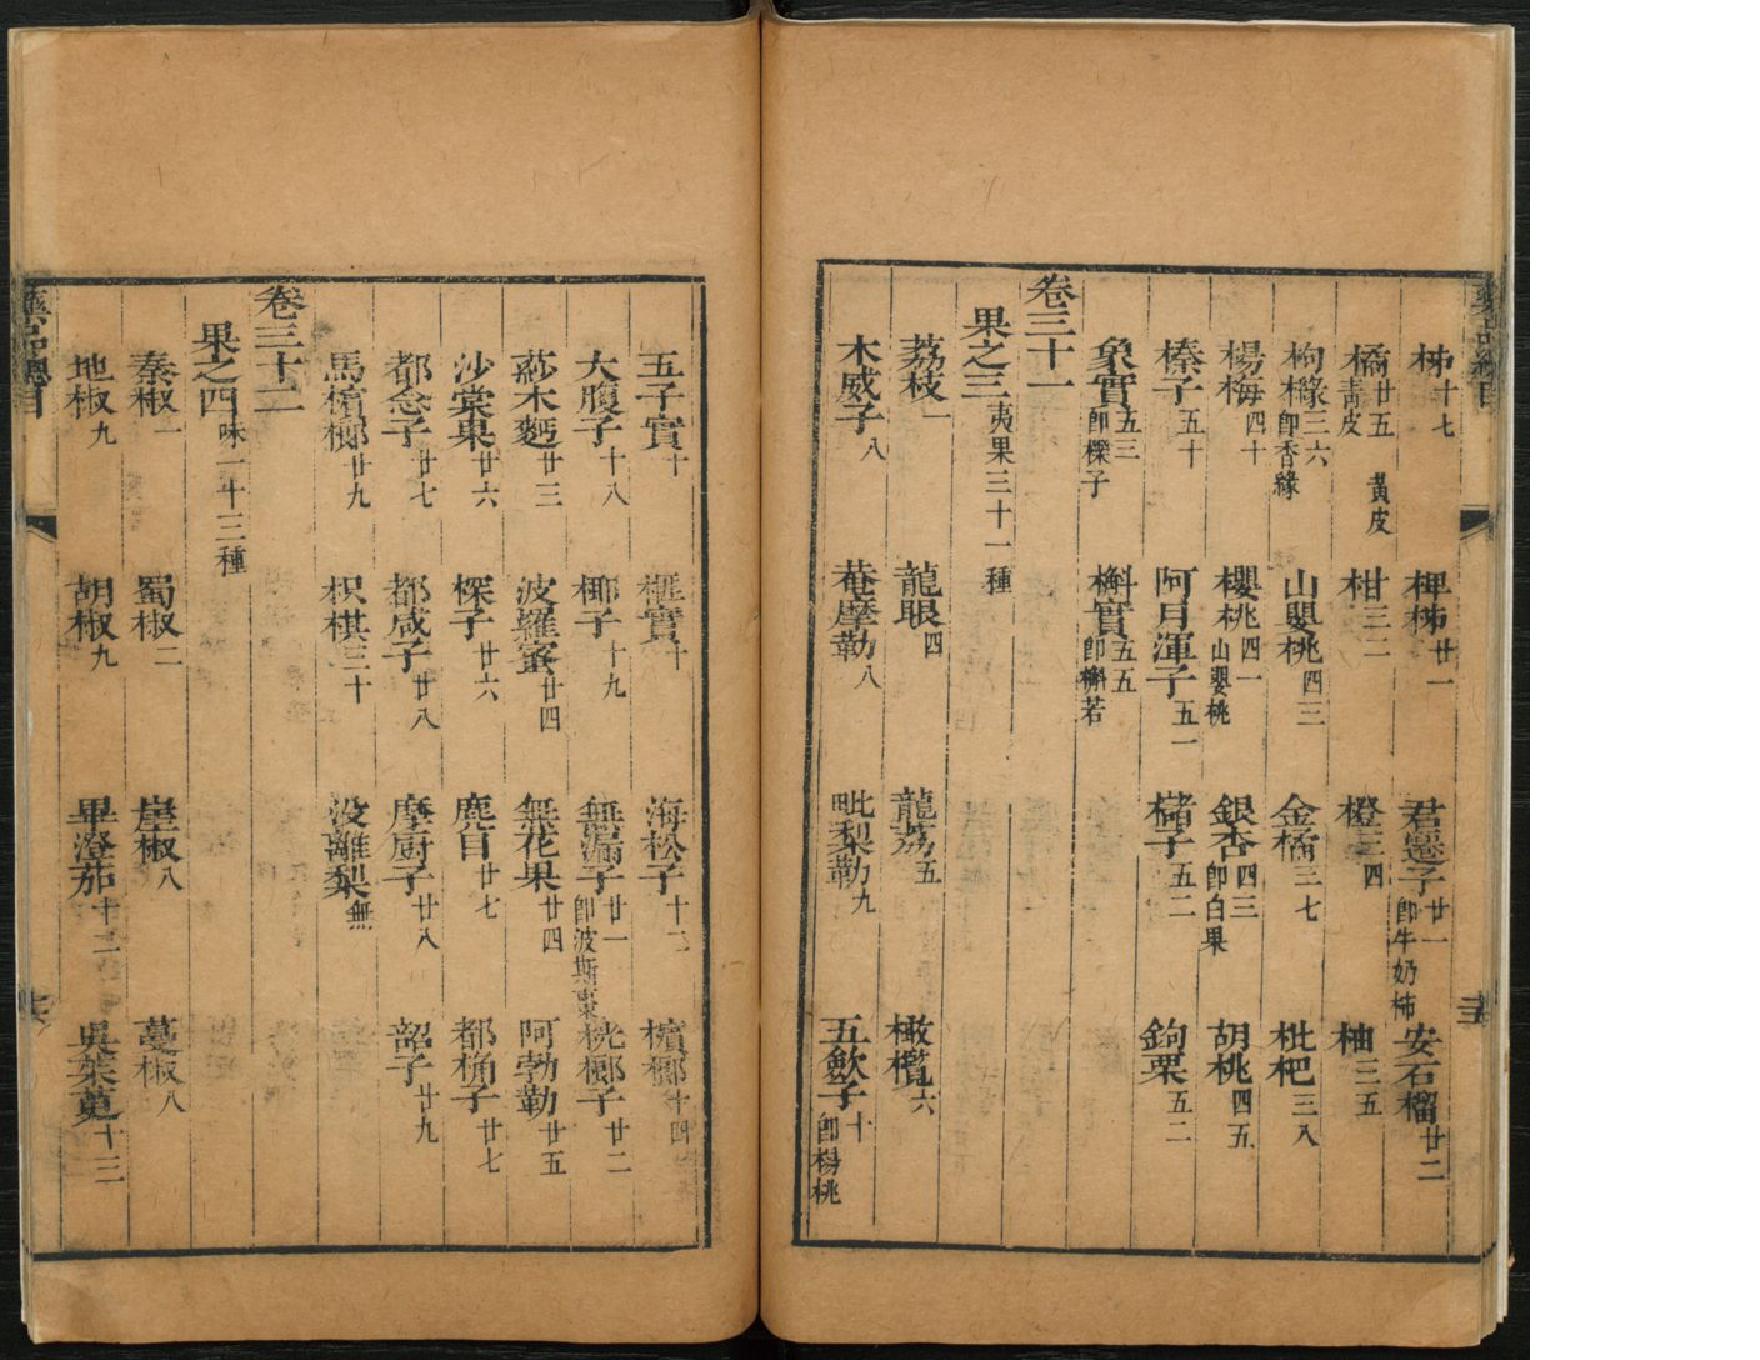 柹十七 椑柹廿一 君遷子廿一卽牛奶柿 安石榴廿二
橘廿五靑皮 黃皮 柑三二 橙三四 柚三五
枸櫞三六卽香緣 山嬰桃四三 金橘三七 枇杷三八
楊梅四十 櫻桃四一山嬰桃 銀杏四三卽白果 胡桃四五
榛子五十 阿月渾子五一 櫧子五二 鉤栗五二
象實五三卽櫟子 槲實五五卽槲若
卷三十一
果之三夷果三十一種
荔枝一 龍眼四 龍荔五 橄欖六
木威子八 菴摩勒八 毗梨勒九 五歛子十卽楊桃
五子實十 榧實十 海松子十二 檳榔十四
大腹子十八 椰子十九 無漏子廿一卽波斯棗 桄榔子廿二
莎木麪廿三 波羅蜜廿四 無花果廿四 阿勃勒廿五
沙棠果廿六 㮏子廿六 麂目廿七 都桷子廿七
都念子廿七 都咸子廿八 摩厨子廿八 韶子廿九
馬檳榔廿九 枳椇三十 没離梨無
卷三十二
果之四味一十三種
秦椒一 蜀椒二 崖椒八 蔓椒八
地椒九 胡椒九 畢澄茄十二 吳茱萸十三